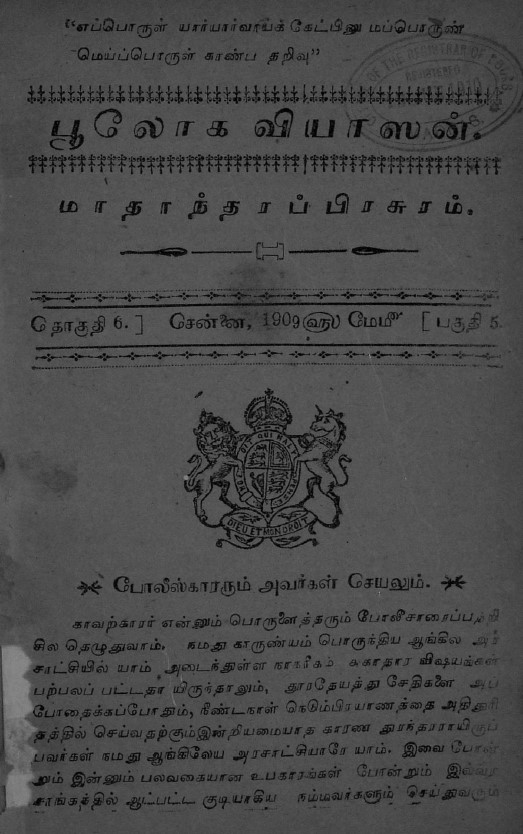 “எப்பொருள் யார்யார்வாய்க் கேட்பினு மப்பொருண்
மெய்ப்பொருள் காண்ப தறிவு”
OF THE REGISTRAR OF BOOKS
REGISTERED
பூலோகவியாஸன்.
மாதாந்தரப்பிரசுரம்.
தொகுதி 6.] சென்னை, 1909 ௵ மே௴ [பகுதி 5.
HONI SOIT QUI MAL Y PENSE
DIEU ET MON DROIT
போலீஸ்காரரும் அவர்கள் செயலும்.
காவற்காரர் என்னும் பொருளைத்தரும் போலீசாரைப்பற்றி
சில தெழுதுவாம். நமது காருண்யம் பொருந்திய ஆங்கில அர
சாட்சியில் யாம் அடைந்துள்ள நாகரீகம் சுகாதார விஷயங்கள்
பற்பலப் பட்டதா யிருந்தாலும், தூரதேயத்து சேதிகளை அப்
போதைக்கப்போதும், நீண்டநாள் நெடும்பிரயாணத்தை அதிதுரி
தத்தில் செய்வதற்கும் இன்றியமையாத காரண துரந்தரராயிருப்
பவர்கள் நமது ஆங்கிலேய அரசாட்சியாரே யாம். இவை போன்
றும் இன்னும் பலவகையான உபகாரங்கள் போன்றும் இவ்வர
சாங்கத்தில் ஆட்பட்ட குடியாகிய நம்மவர்களும் செய்துவரும்